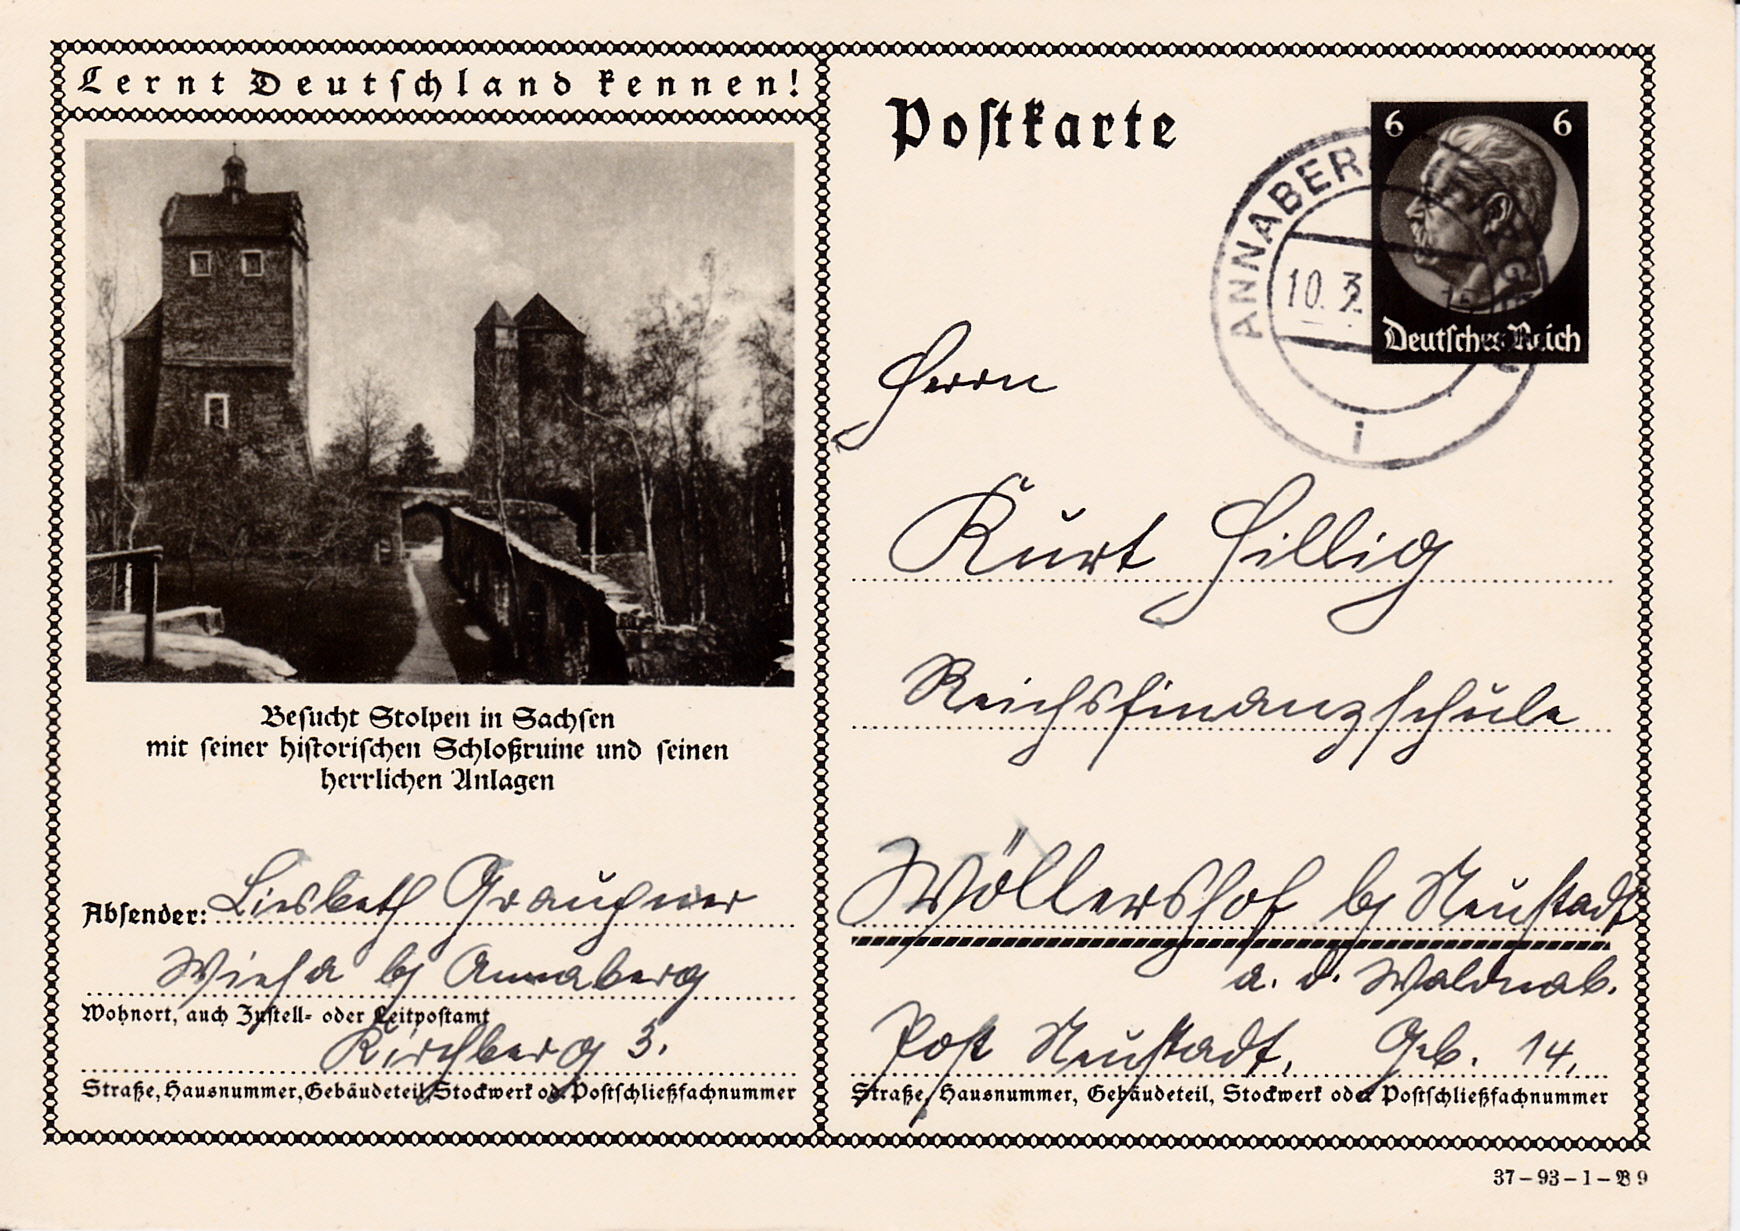 Lernt Deutschland kennen!
Besucht Stolpen in Sachsen
mit seiner historischen Schloßruine und seinen
herrlichen Anlagen
Absender: Liesbeth
Wiesa b/ Annaberg
Wohnort, auch Zustell- oder Leitpostamt
Kirchberg 3.
Straße, Hausnummer, Gebäudeteil, Stockwerk od. Postschließfachnummer
Postkarte
6 6
Deutsches Reich
ANNABERG
10. 3.
i
Herrn
Kurt Hillig
Reichsfinanzschule
Wöllershof b/ Neustadt
a. d. Waldnab.
Post Neustadt, Geb. 14,
Straße, Hausnummer, Gebäudeteil, Stockwerk oder Postschließfachnummer
37-93-1-B9